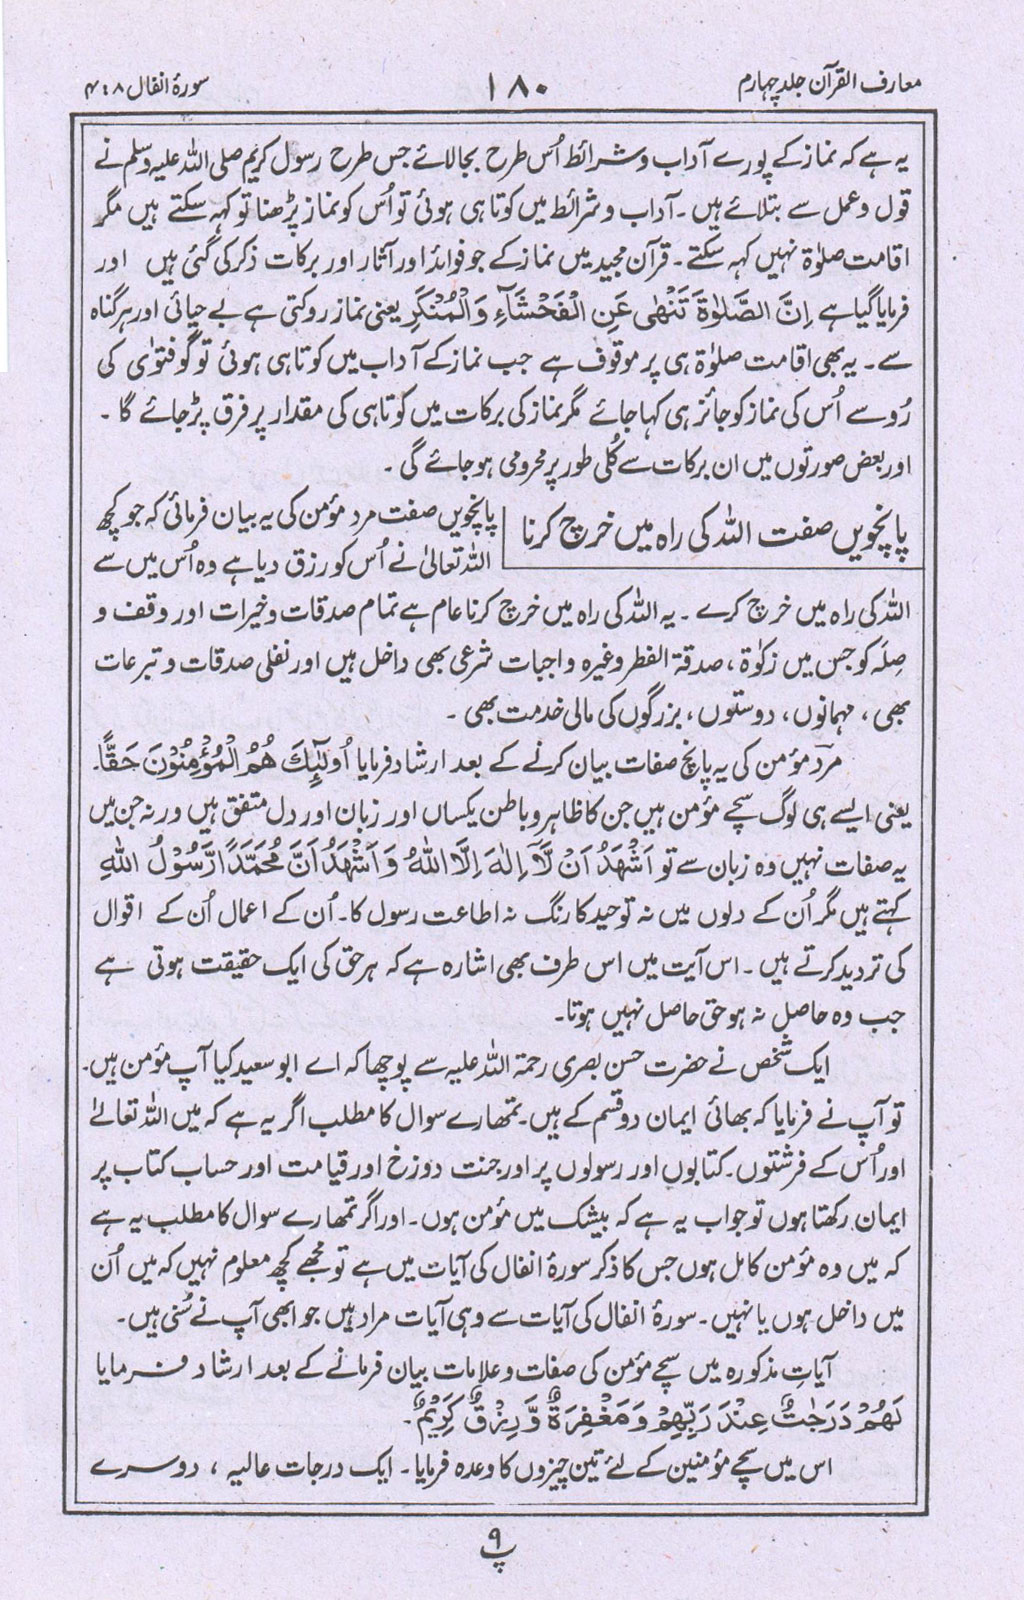 معارف القرآن جلد چہارم
۱۸۰
سورۂ انفال ۸ : ۴
یہ ہے کہ نماز کے پورے آداب و شرائط اُس طرح بجا لائے جس طرح رسول کریم صلی اللہ علیہ وسلم نے
قول و عمل سے بتلائے ہیں۔ آداب و شرائط میں کوتاہی ہوئی تو اُس کو نماز پڑھنا تو کہہ سکتے ہیں مگر
اقامت صلوٰۃ نہیں کہہ سکتے۔ قرآن مجید میں نماز کے جو فوائد اور آثار اور برکات ذکر کی گئی ہیں اور
فرمایا گیا ہے اِنَّ الصَّلٰوةَ تَنْهٰى عَنِ الْفَحْشَآءِ وَالْمُنْكَرِ یعنی نماز روکتی ہے بے حیائی اور ہر گناہ
سے۔ یہ بھی اقامت صلوٰۃ ہی پر موقوف ہے جب نماز کے آداب میں کوتاہی ہوئی تو گو فتوٰی کی
رُو سے اُس کی نماز کو جائز ہی کہا جائے مگر نماز کی برکات میں کوتاہی کی مقدار پر فرق پڑ جائے گا۔
اور بعض صورتوں میں ان برکات سے کُلی طور پر محرومی ہو جائے گی۔
پانچویں صفت اللہ کی راہ میں خرچ کرنا
پانچویں صفت مرد مؤمن کی یہ بیان فرمائی کہ جو کچھ
اللہ تعالیٰ نے اُس کو رزق دیا ہے وہ اُس میں سے
اللہ کی راہ میں خرچ کرے۔ یہ اللہ کی راہ میں خرچ کرنا عام ہے تمام صدقات و خیرات اور وقف و
صِلہ کو جس میں زکوٰۃ، صدقۃ الفطر وغیرہ واجبات شرعی بھی داخل ہیں اور نفلی صدقات و تبرعات
بھی، مہمانوں، دوستوں، بزرگوں کی مالی خدمت بھی۔
مرد مؤمن کی یہ پانچ صفات بیان کرنے کے بعد ارشاد فرمایا اُولٰٓئِكَ هُمُ الْمُؤْمِنُوْنَ حَقًّا۔
یعنی ایسے ہی لوگ سچے مؤمن ہیں جن کا ظاہر و باطن یکساں اور زبان اور دل متفق ہیں ورنہ جن میں
یہ صفات نہیں وہ زبان سے تو اَشْهَدُ اَنْ لَّآ اِلٰهَ اِلَّا اللهُ وَاَشْهَدُ اَنَّ مُحَمَّدًا رَّسُوْلُ اللهِ
کہتے ہیں مگر اُن کے دلوں میں نہ توحید کا رنگ نہ اطاعت رسول کا۔ اُن کے اعمال اُن کے اقوال
کی تردید کرتے ہیں۔ اس آیت میں اس طرف بھی اشارہ ہے کہ ہر حق کی ایک حقیقت ہوتی ہے
جب وہ حاصل نہ ہو حق حاصل نہیں ہوتا۔
ایک شخص نے حضرت حسن بصری رحمۃ اللہ علیہ سے پوچھا کہ اے ابو سعید کیا آپ مؤمن ہیں۔
تو آپ نے فرمایا کہ بھائی ایمان دو قسم کے ہیں۔ تمھارے سوال کا مطلب اگر یہ ہے کہ میں اللہ تعالےٰ
اور اُس کے فرشتوں۔ کتابوں اور رسولوں پر اور جنت دوزخ اور قیامت اور حساب کتاب پر
ایمان رکھتا ہوں تو جواب یہ ہے کہ بیشک میں مؤمن ہوں۔ اور اگر تمھارے سوال کا مطلب یہ ہے
کہ میں وہ مؤمن کامل ہوں جس کا ذکر سورۂ انفال کی آیات میں ہے تو مجھے کچھ معلوم نہیں کہ میں اُن
میں داخل ہوں یا نہیں۔ سورۂ انفال کی آیات سے وہی آیات مراد ہیں جو ابھی آپ نے سُنی ہیں۔
آیاتِ مذکورہ میں سچے مؤمن کی صفات و علامات بیان فرمانے کے بعد ارشاد فرمایا
لَهُمْ دَرَجٰتٌ عِنْدَ رَبِّهِمْ وَمَغْفِرَةٌ وَّرِزْقٌ كَرِيْمٌ۔
اس میں سچے مؤمنین کے لئے تین چیزوں کا وعدہ فرمایا۔ ایک درجات عالیہ، دوسرے
پ ۹